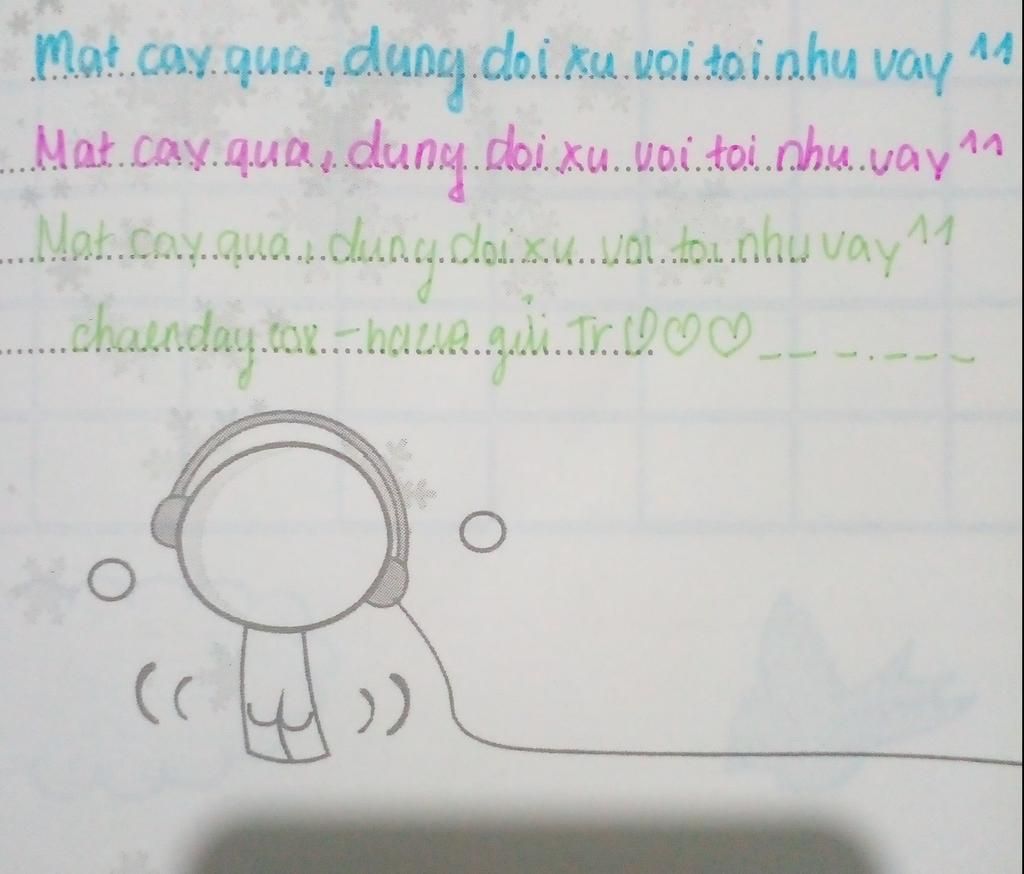 Mat cay qua, dung doi xu voi toi nhu vay ^^
Mat cay qua, dung doi xu voi toi nhu vay ^^
Mat cay qua, dung doi xu voi toi nhu vay ^^
chaenday gửi Tr ♡♡♡